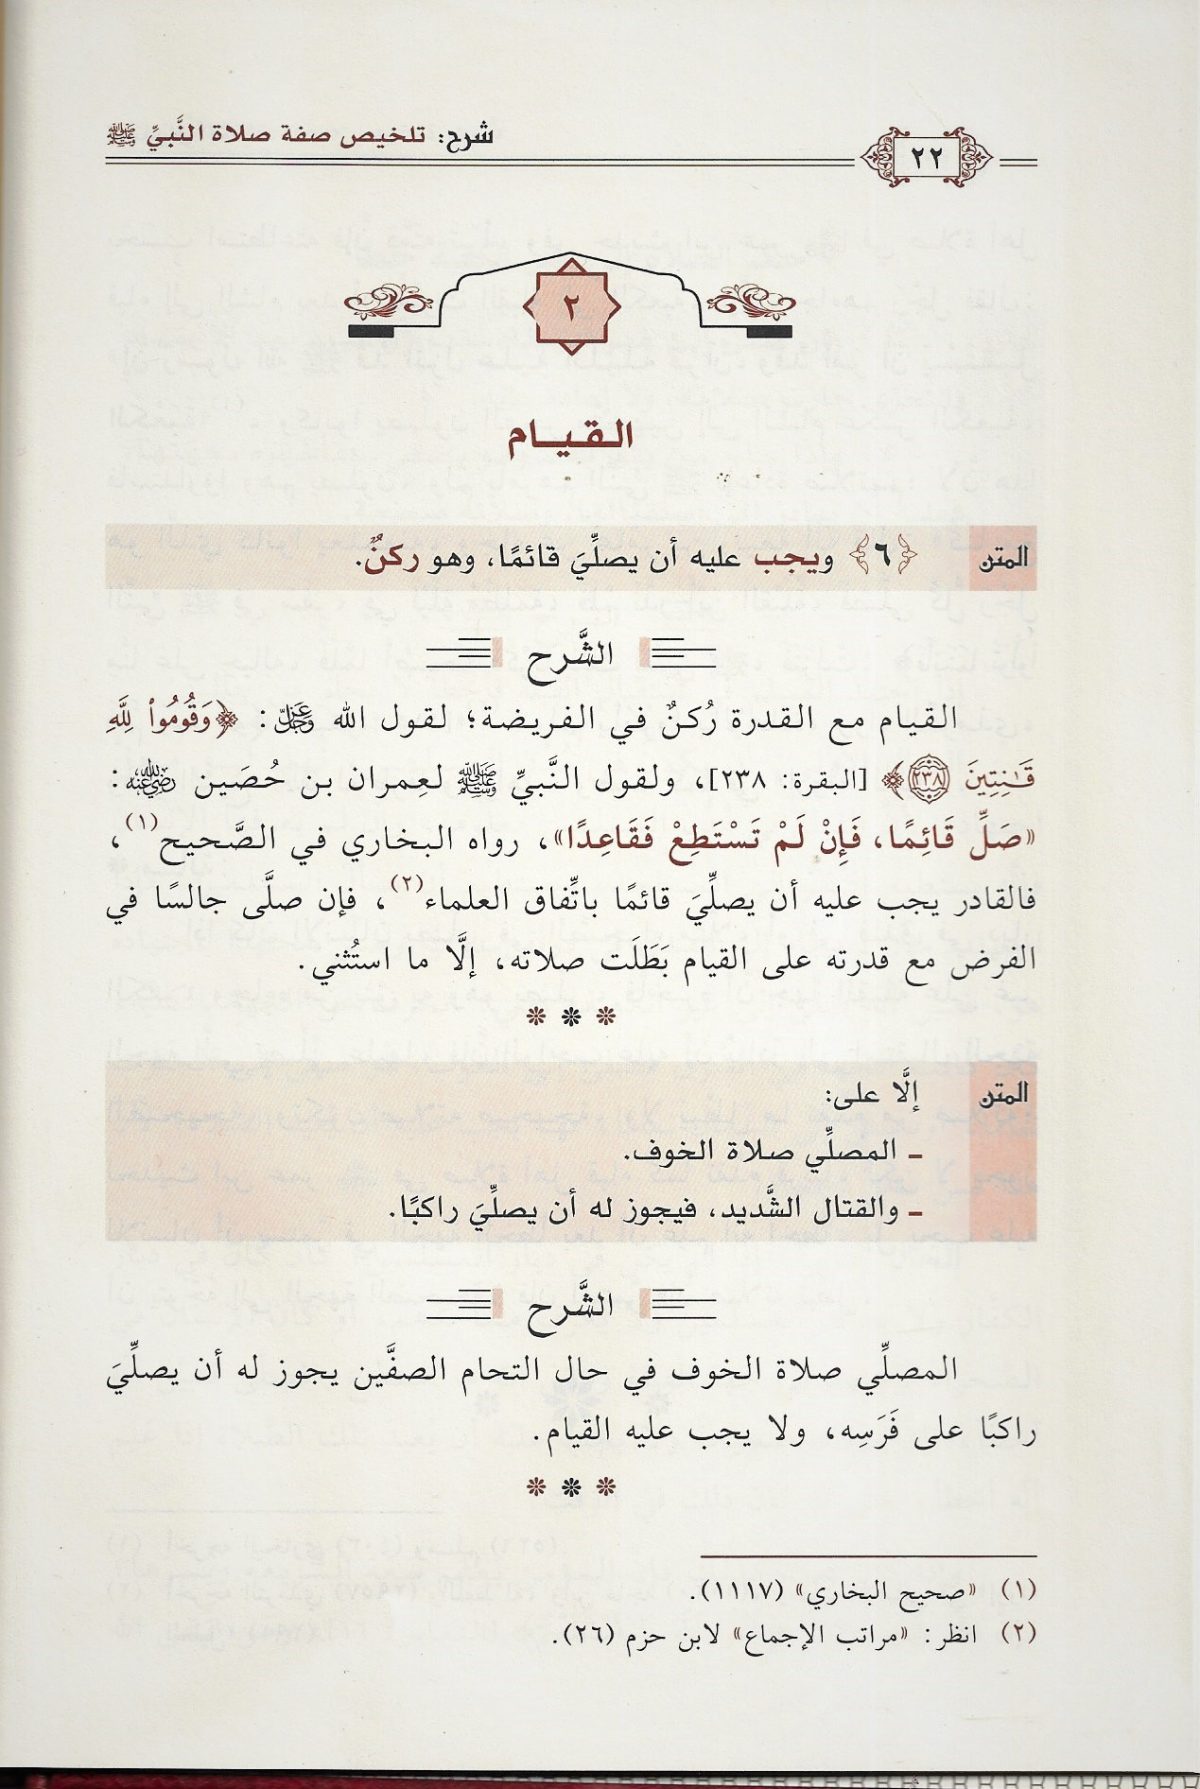 ٢٢
شرح: تلخيص صفة صلاة النَّبيِّ ﷺ
٢
القيام
المتن ﴿٦﴾ ويجب عليه أن يصلِّيَ قائمًا، وهو ركنٌ.
الشَّرح
القيام مع القدرة رُكنٌ في الفريضة؛ لقول الله عَزَّوَجَلَّ: ﴿وَقُومُوا۟ لِلَّهِ
قَـٰنِتِينَ ٢٣٨﴾ [البقرة: ٢٣٨]، ولقول النَّبيِّ ﷺ لعِمران بن حُصَين رَضِيَ اللهُ عَنْهُ:
«صَلِّ قَائِمًا، فَإِنْ لَمْ تَسْتَطِعْ فَقَاعِدًا»، رواه البخاري في الصَّحيح(١)،
فالقادر يجب عليه أن يصلِّيَ قائمًا باتِّفاق العلماء(٢)، فإن صلَّى جالسًا في
الفرض مع قدرته على القيام بَطَلَت صلاته، إلَّا ما استُثني.
المتن إلَّا على:
ـ المصلِّي صلاة الخوف.
ـ والقتال الشَّديد، فيجوز له أن يصلِّيَ راكبًا.
الشَّرح
المصلِّي صلاة الخوف في حال التحام الصفَّين يجوز له أن يصلِّيَ
راكبًا على فَرَسِه، ولا يجب عليه القيام.
(١) «صحيح البخاري» (١١١٧).
(٢) انظر: «مراتب الإجماع» لابن حزم (٢٦).